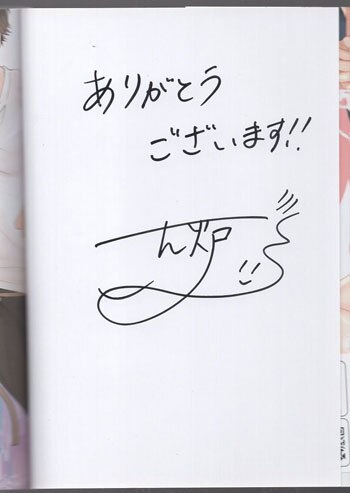 ありがとう
ございます!!
ん炉